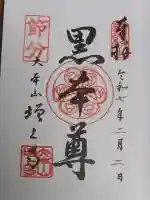 奉拝
令和七年二月二日
黒本尊
節分
大本山増上寺